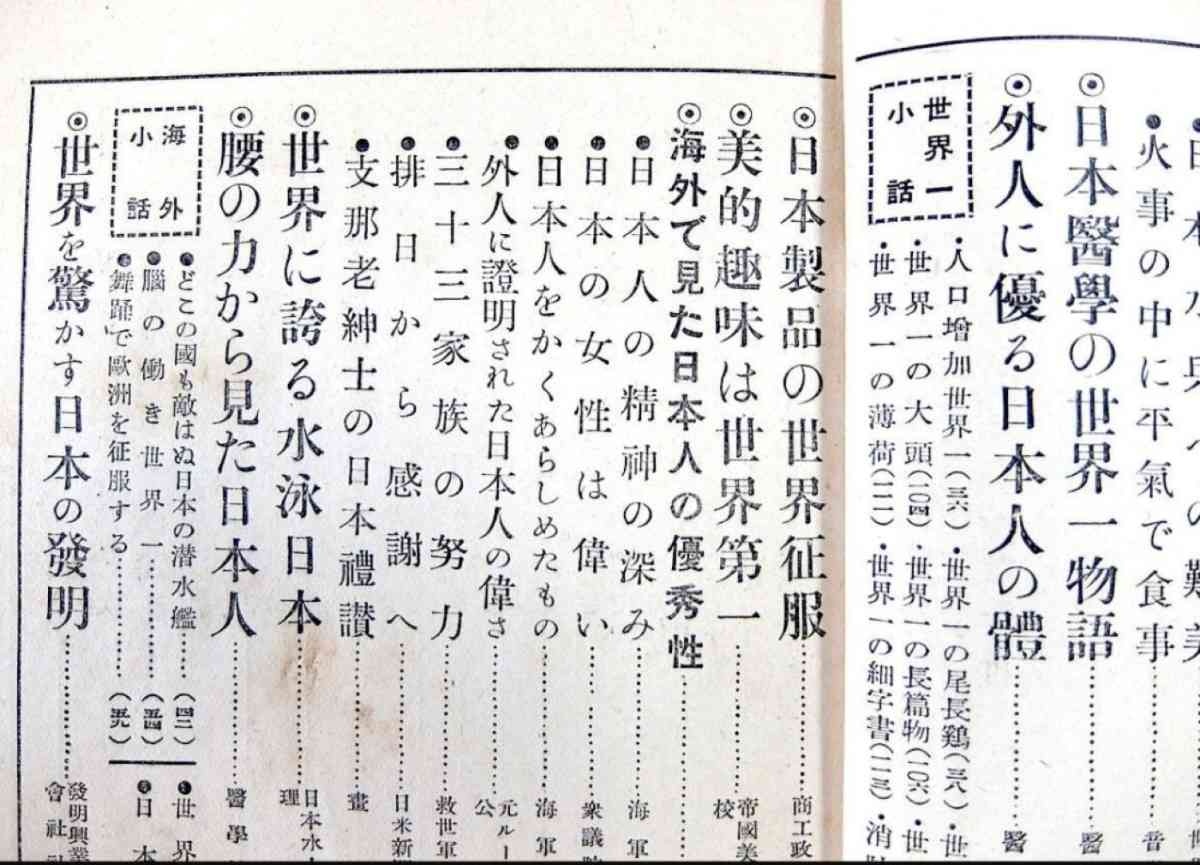 ●火事の中に平氣で食事
◉日本醫學の世界一物語
醫
◉外人に優る日本人の體
醫
世界一小話
・人口增加世界一(三六)・世界一の尾長鷄(三八)・世
・世界一の大頭(一〇四)・世界一の長篇物(一〇六)・世
・世界一の薄荷(一一一)・世界一の細字書(一一三)・消
◉日本製品の世界征服
商工政
◉美的趣味は世界第一
帝國美
校
◉海外で見た日本人の優秀性
●日本人の精神の深み
海軍
●日本の女性は偉い
衆議院
●日本人をかくあらしめたもの
海軍
●外人に證明された日本人の偉さ
元ルー
公
●三十三家族の努力
救世軍
●排日から感謝へ
日米新
●支那老紳士の日本禮讃
畫
◉世界に誇る水泳日本
日本水
理
◉腰の力から見た日本人
醫學
海外小話
●どこの國も敵はぬ日本の潜水艦……(四二)
●腦の働き世界一……(五四)
●「舞踊」で歐洲を征服する……(五九)
●世界
●日本
◉世界を驚かす日本の發明
發明興業
會社